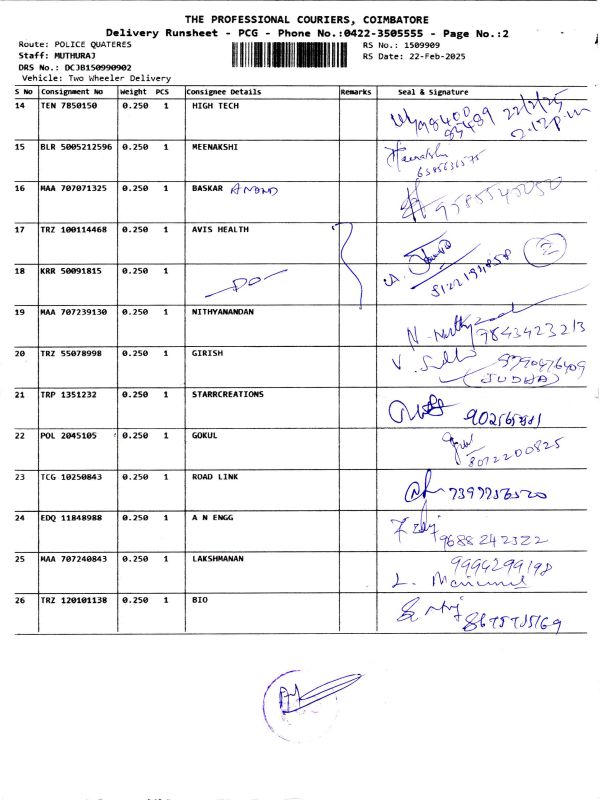 THE PROFESSIONAL COURIERS, COIMBATORE
Delivery Runsheet - PCG - Phone No.:0422-3505555 - Page No.:2
Route: POLICE QUATERES RS No.: 1509909
Staff: MUTHURAJ RS Date: 22-Feb-2025
DRS No.: DCJB150990902
Vehicle: Two Wheeler Delivery
S No Consignment No Weight PCS Consignee Details Remarks Seal & Signature
14 TEN 7850150 0.250 1 HIGH TECH 22/2/25
2.12 p.m
15 BLR 5005212596 0.250 1 MEENAKSHI Meenakshi
16 MAA 707071325 0.250 1 BASKAR ANAND 9585545050
17 TRZ 100114468 0.250 1 AVIS HEALTH
18 KRR 50091815 0.250 1 -DO- 2
19 MAA 707239130 0.250 1 NITHYANANDAN 9843423213
20 TRZ 55078998 0.250 1 GIRISH 9790476409
(SUDHA)
21 TRP 1351232 0.250 1 STARRCREATIONS
22 POL 2045105 0.250 1 GOKUL 8072200825
23 TCG 10250843 0.250 1 ROAD LINK
24 EDQ 11848988 0.250 1 A N ENGG 9688242322
25 MAA 707240843 0.250 1 LAKSHMANAN 9994299198
26 TRZ 120101138 0.250 1 BIO